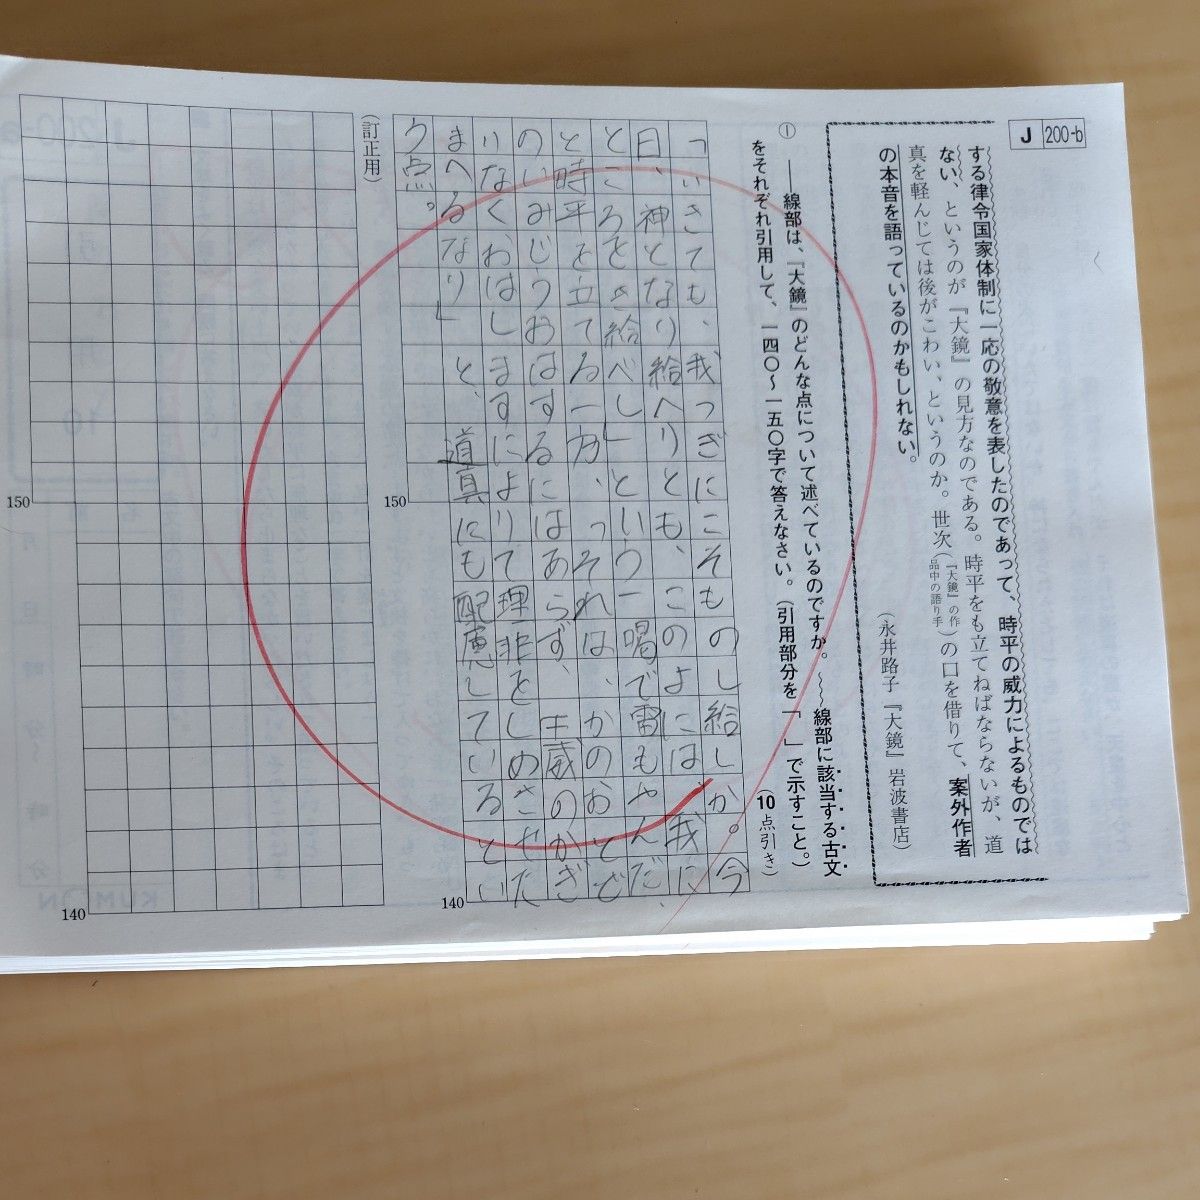 J 200-b
する律令国家体制に一応の敬意を表したのであって、時平の威力によるものでは
ない、というのが『大鏡』の見方なのである。時平をも立てねばならないが、道
真を軽んじては後がこわい、というのか。世次(『大鏡』の作品中の語り手)の口を借りて、案外作者
の本音を語っているのかもしれない。
(永井路子『大鏡』岩波書店)
① ――線部は、『大鏡』のどんな点について述べているのですか。〜〜線部に該当する古文
をそれぞれ引用して、一四〇〜一五〇字で答えなさい。(引用部分を「 」で示すこと。)
(10点引き)
「いきても、我つぎにこそものし給しか。今
日、神となり給へりとも、このよには、我に
ところをき給べし」という一喝で雷もやんだ、
と時平を立てる一方、「それは、かのおとど
のいみじうおはするにはあらず、王威のかぎ
りなくおはしますによりて理非をしめさせた
まへるなり」と、道真にも配慮しているとい
う点。
140
150
(訂正用)
140
150
KUMON